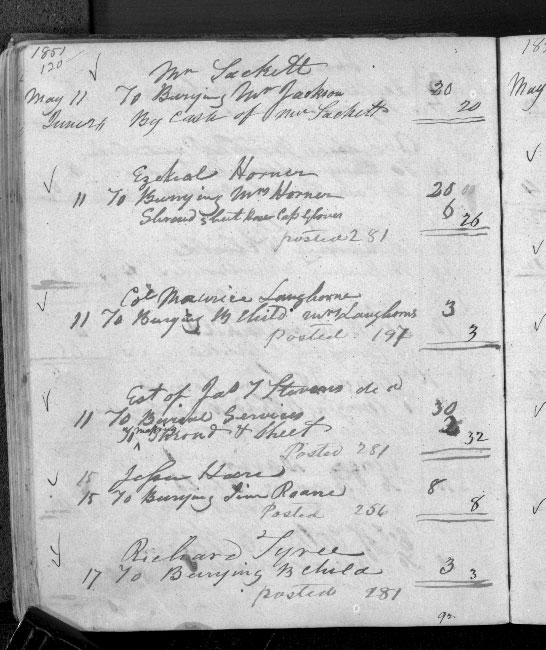 1851
120
Mr Sackett
May 11 To Burying Mr Jackson 20
June 24 By Cash of Mr Sackett 20
Ezekial Horner
11 To Burrying Mrs Horner 20 00
Shroud Sheet Cap & Gloves 6 26
posted 281
Col Maurice Langhorne
11 To Burying B Child Mrs Langhorns 3
Posted 197 3
Est of Jas T Stevens decd
11 To Burial Services 30
Shroud & Sheet 2 32
Posted 281
15 John Hare
15 To Burying Jim Roane 8
Posted 256 8
Richard Tyree
17 To Burying B Child 3 3
posted 281
92
185
May